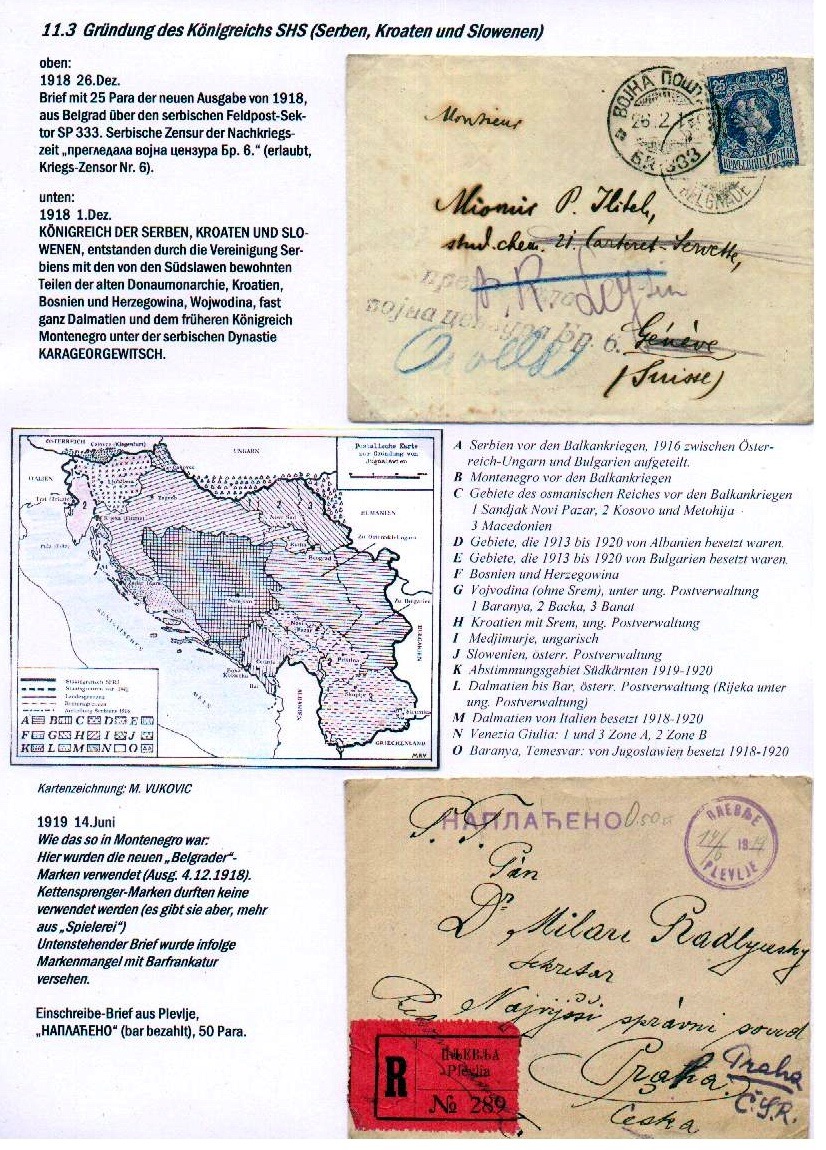 11.3 Gründung des Königreichs SHS (Serben, Kroaten und Slowenen)
oben:
1918 26.Dez.
Brief mit 25 Para der neuen Ausgabe von 1918,
aus Belgrad über den serbischen Feldpost-Sek-
tor SP 333. Serbische Zensur der Nachkriegs-
zeit „прегледала војна цензура Бр. 6.“ (erlaubt,
Kriegs-Zensor Nr. 6).
unten:
1918 1.Dez.
KÖNIGREICH DER SERBEN, KROATEN UND SLO-
WENEN, entstanden durch die Vereinigung Ser-
biens mit den von den Südslawen bewohnten
Teilen der alten Donaumonarchie, Kroatien,
Bosnien und Herzegowina, Wojwodina, fast
ganz Dalmatien und dem früheren Königreich
Montenegro unter der serbischen Dynastie
KARAGEORGEWITSCH.
ВОЈНА ПОШТ
26.2.1
БР. 333
25 25
КРАЉЕВИНА СРБИЈА
BELGRADE
Monsieur
Miomir P. Ilitch,
stud. chem. 21. Carteret-Servette,
војна цензура Бр. 6.
Genève
(Suisse)
ÖSTERREICH
UNGARN
ITALIEN
Postalische Karte
zur Gründung von
Jugoslawien
RUMÄNIEN
Zagreb
Beograd
Sarajevo
BULGARIEN
ALBANIEN
GRIECHENLAND
Bar
A B C D E
F G H I J
K L M N O
A Serbien vor den Balkankriegen, 1916 zwischen Öster-
reich-Ungarn und Bulgarien aufgeteilt.
B Montenegro vor den Balkankriegen
C Gebiete des osmanischen Reiches vor den Balkankriegen
1 Sandjak Novi Pazar, 2 Kosovo und Metohija
3 Macedonien
D Gebiete, die 1913 bis 1920 von Albanien besetzt waren.
E Gebiete, die 1913 bis 1920 von Bulgarien besetzt waren.
F Bosnien und Herzegowina
G Vojvodina (ohne Srem), unter ung. Postverwaltung
1 Baranya, 2 Backa, 3 Banat
H Kroatien mit Srem, ung. Postverwaltung
I Medjimurje, ungarisch
J Slowenien, österr. Postverwaltung
K Abstimmungsgebiet Südkärnten 1919-1920
L Dalmatien bis Bar, österr. Postverwaltung (Rijeka unter
ung. Postverwaltung)
M Dalmatien von Italien besetzt 1918-1920
N Venezia Giulia: 1 und 3 Zone A, 2 Zone B
O Baranya, Temesvar: von Jugoslawien besetzt 1918-1920
Kartenzeichnung: M. VUKOVIC
1919 14.Juni
Wie das so in Montenegro war:
Hier wurden die neuen „Belgrader“-
Marken verwendet (Ausg. 4.12.1918).
Kettensprenger-Marken durften keine
verwendet werden (es gibt sie aber, mehr
aus „Spielerei“)
Untenstehender Brief wurde infolge
Markenmangel mit Barfrankatur
versehen.
Einschreibe-Brief aus Plevlje,
„НАПЛАЋЕНО“ (bar bezahlt), 50 Para.
P. T. НАПЛАЋЕНО
ПЛЕВЉЕ
14/6 1919
PLEVLJE
Pán
Dr Milan Radlynsky
sekretar
Nejvyšší správni
Praha
Praha
Č.S.R.
Česka
R
ПЉЕВЉА
Plevlia
№ 289